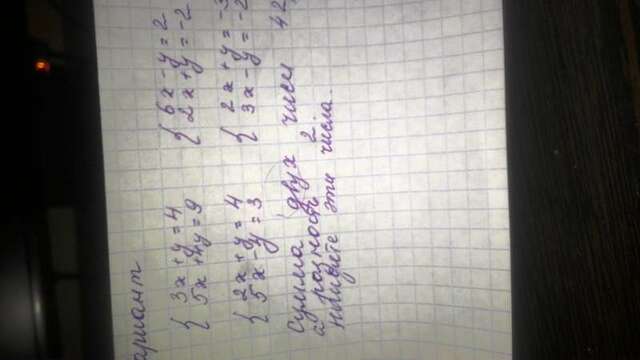 ариант
3x + y = 4
5x + 4y = 9
6x - y = 2
2x + y = -2
2x + y = 4
5x - y = 3
2x + y = -3
3x - y = -2
Сумма двух чисел 42
а разность 2.
Найдите эти числа.